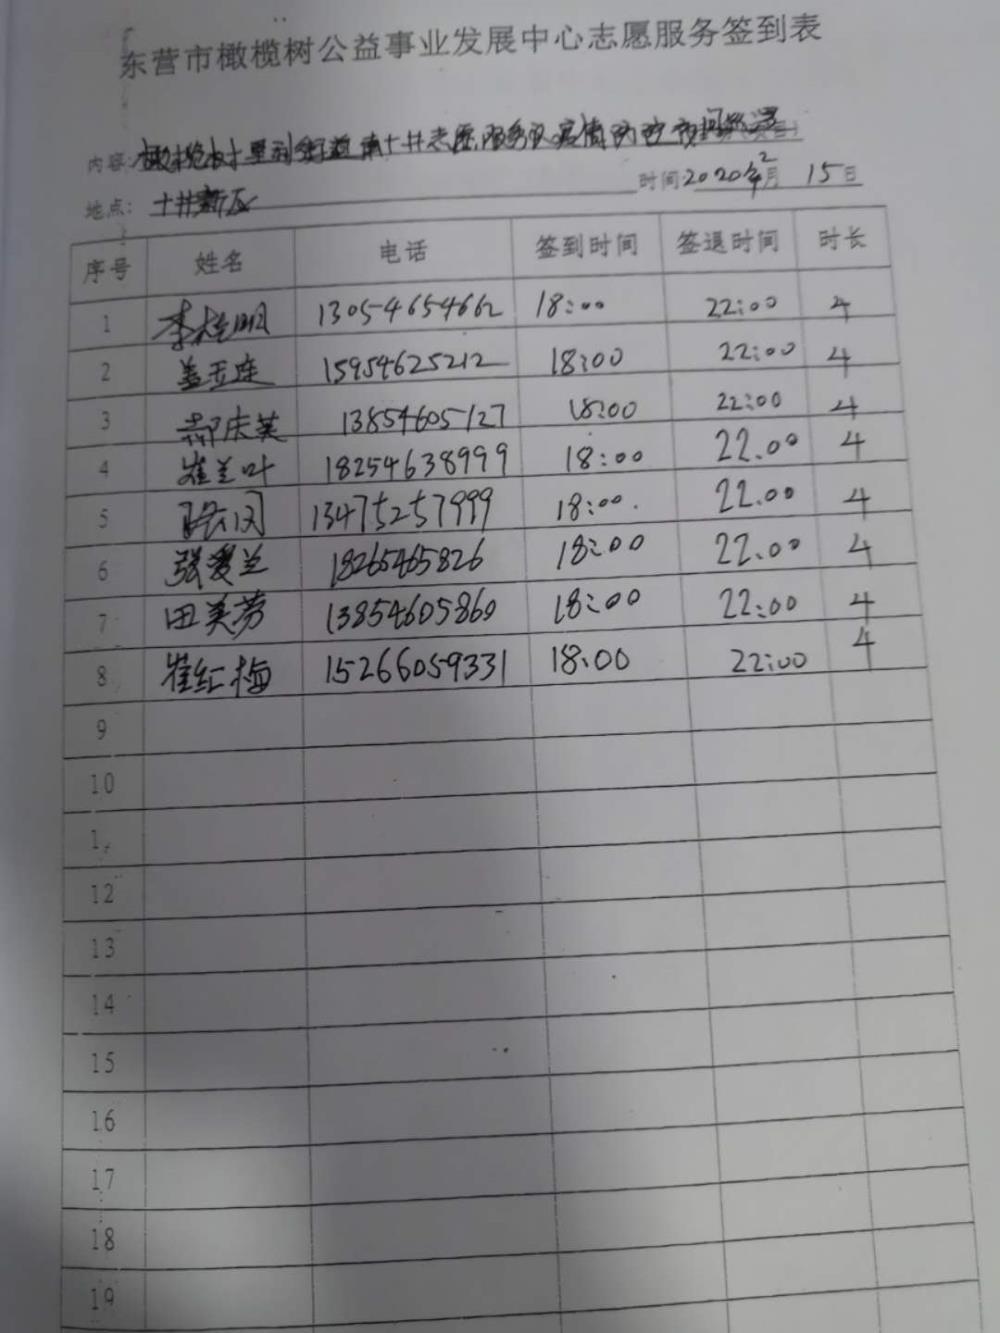 东营市橄榄树公益事业发展中心志愿服务签到表
内容: 橄榄树垦利街道南十井志愿服务队疫情防控夜间巡逻
地点: 十井新区 时间2020年2月15日
序号 姓名 电话 签到时间 签退时间 时长
1 李桂明 13054654662 18:00 22:00 4
2 盖玉连 15954625212 18:00 22:00 4
3 郝庆英 13854605127 18:00 22:00 4
4 崔兰叶 18254638999 18:00 22.00 4
5 13475257999 18:00. 22.00 4
6 张爱兰 18265465826 18:00 22.00 4
7 田美芳 13854605860 18:00 22:00 4
8 崔红梅 15266059331 18:00 22:00 4
9
10
1
12
13
14
15
16
17
18
19